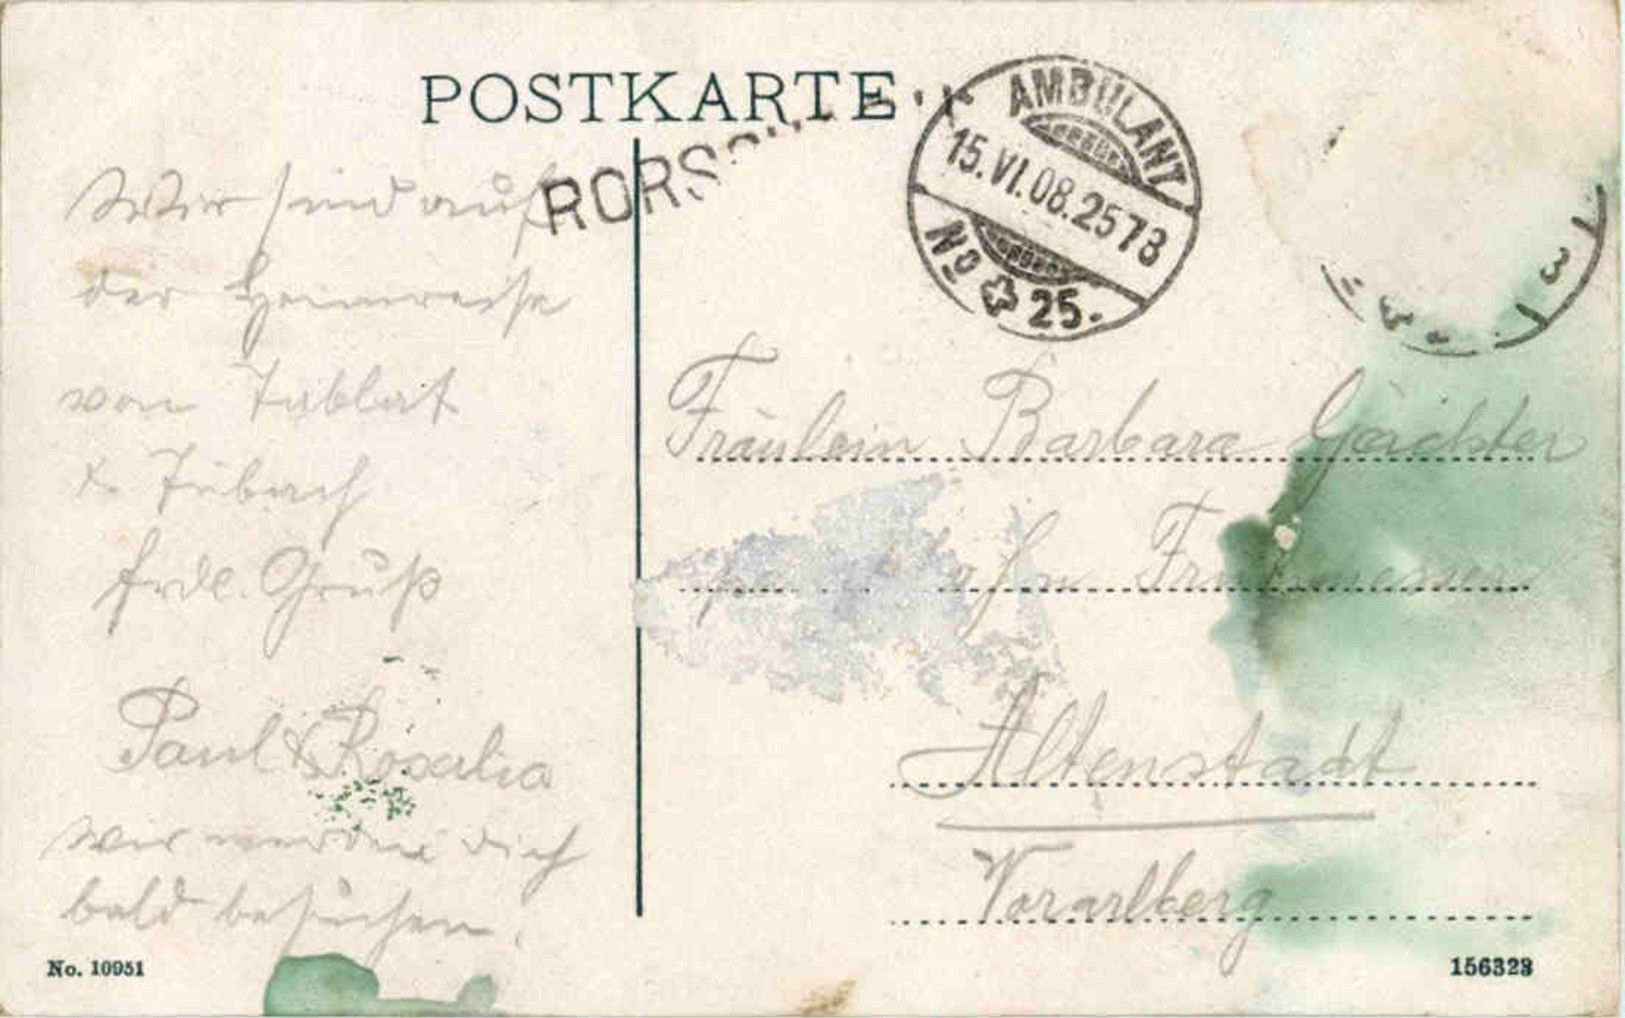 POSTKARTE
RORSCH
AMBULANT
15.VI.08.2573
No 25.
Wir sind auf
der Heimreise
von Tablat
& Tübach
frdl. Gruß
Paul & Rosalia
wir werden dich
bald besuchen.
Fräulein Barbara Gächter
Altenstadt
Vorarlberg
No. 10951
156323